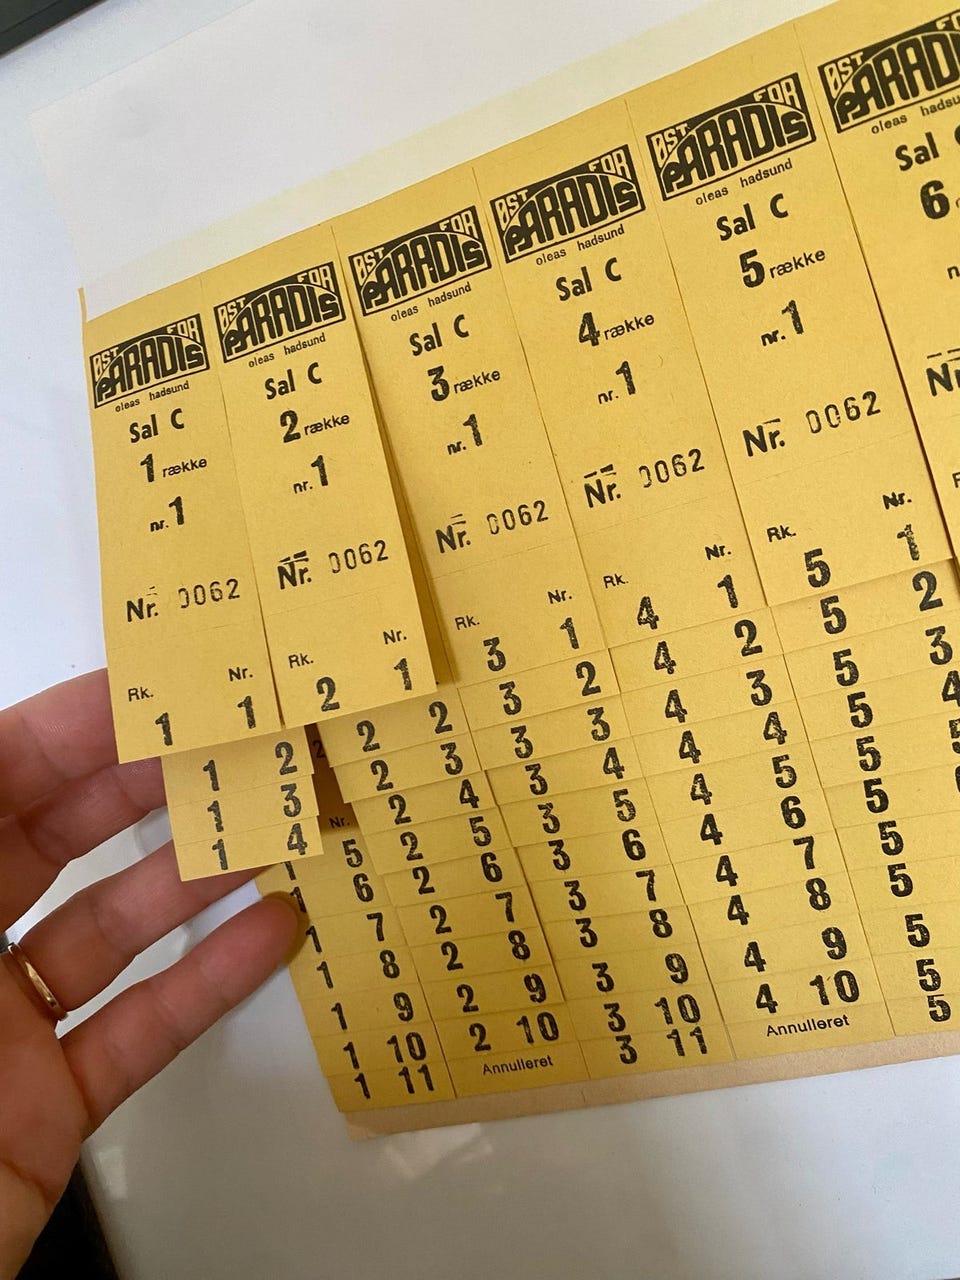 ØST FOR
PARADIS
oleas hadsund
Sal C
1 række
nr. 1
Nr. 0062
Rk. Nr.
1 1
1 2
1 3
1 4
Nr.
1 5
1 6
1 7
1 8
1 9
1 10
1 11
ØST FOR
PARADIS
oleas hadsund
Sal C
2 række
nr. 1
Nr. 0062
Rk. Nr.
2 1
2 2
2 3
2 4
2 5
2 6
2 7
2 8
2 9
2 10
Annulleret
ØST FOR
PARADIS
oleas hadsund
Sal C
3 række
nr. 1
Nr. 0062
Rk. Nr.
3 1
3 2
3 3
3 4
3 5
3 6
3 7
3 8
3 9
3 10
3 11
ØST FOR
PARADIS
oleas hadsund
Sal C
4 række
nr. 1
Nr. 0062
Rk. Nr.
4 1
4 2
4 3
4 4
4 5
4 6
4 7
4 8
4 9
4 10
Annulleret
ØST FOR
PARADIS
oleas hadsund
Sal C
5 række
nr. 1
Nr. 0062
Rk. Nr.
5 1
5 2
5 3
5 4
5 5
5
5
5
5
5
5
ØST
PARAD
oleas hadsu
Sal
6
Nr